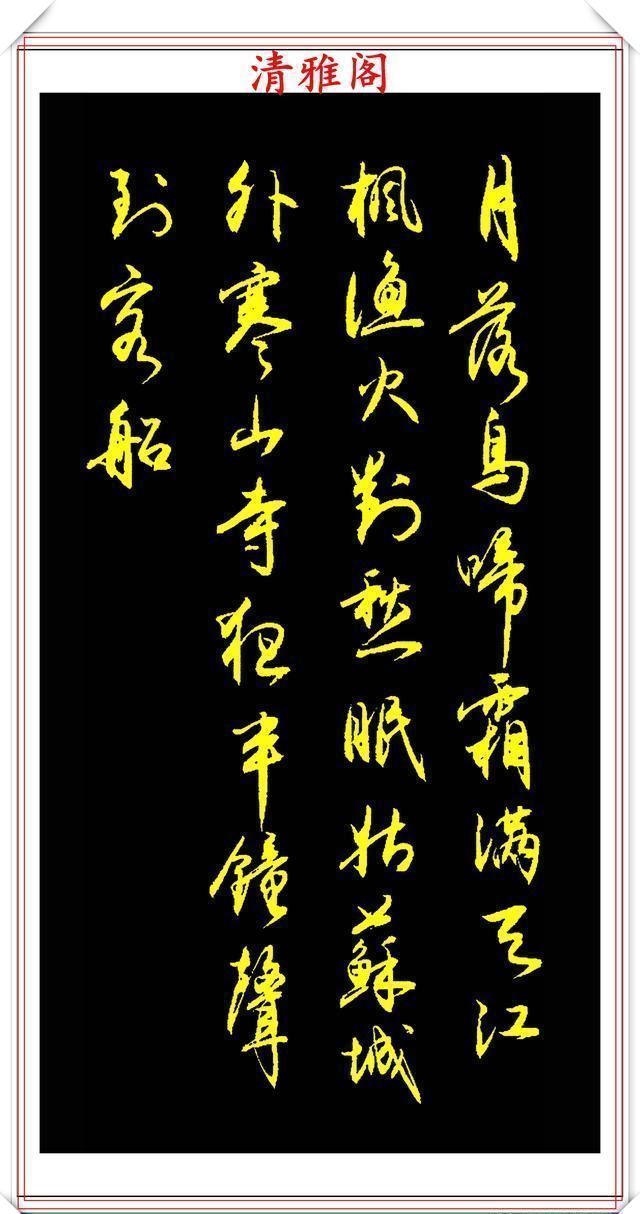 清雅阁
月落烏啼霜滿天江
楓漁火對愁眠姑蘇城
外寒山寺夜半鐘聲
到客船